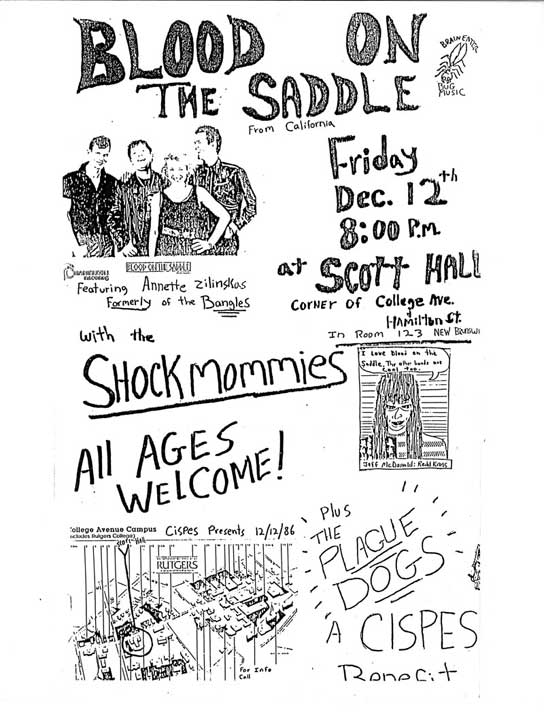 BLOOD ON
THE SADDLE
From California
BRAIN EATER
BUG
MUSIC
Friday
Dec. 12th
8:00 P.M.
at SCOTT HALL
CORNER OF College Ave.
& HAMILTON St.
In Room 123 NEW BRUNSWI
BLOOD ON THE SADDLE
Featuring Annette Zilinskas
Formerly of the Bangles
With the
SHOCK MOMMIES
I Love Blood on the
Saddle. The other bands are
Cool too.
Jeff McDonald: Redd Kross
All AGES
WELCOME!
ollege Avenue Campus
ncludes Rutgers College)
CISPES Presents 12/12/86
Scott Hall
RUTGERS
For Info
Call
Plus
THE
PLAGUE
DOGS
A CISPES
Benefit